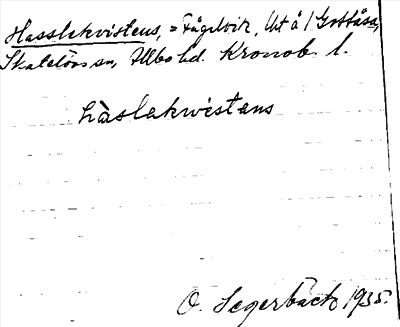 Hasslekvistens, = Fågelvik, Ut å / Gottåsa,
Skatelövs sn, Allbo hd. Kronob. l.
hàslakwistens
O. Segerbäck 1935.